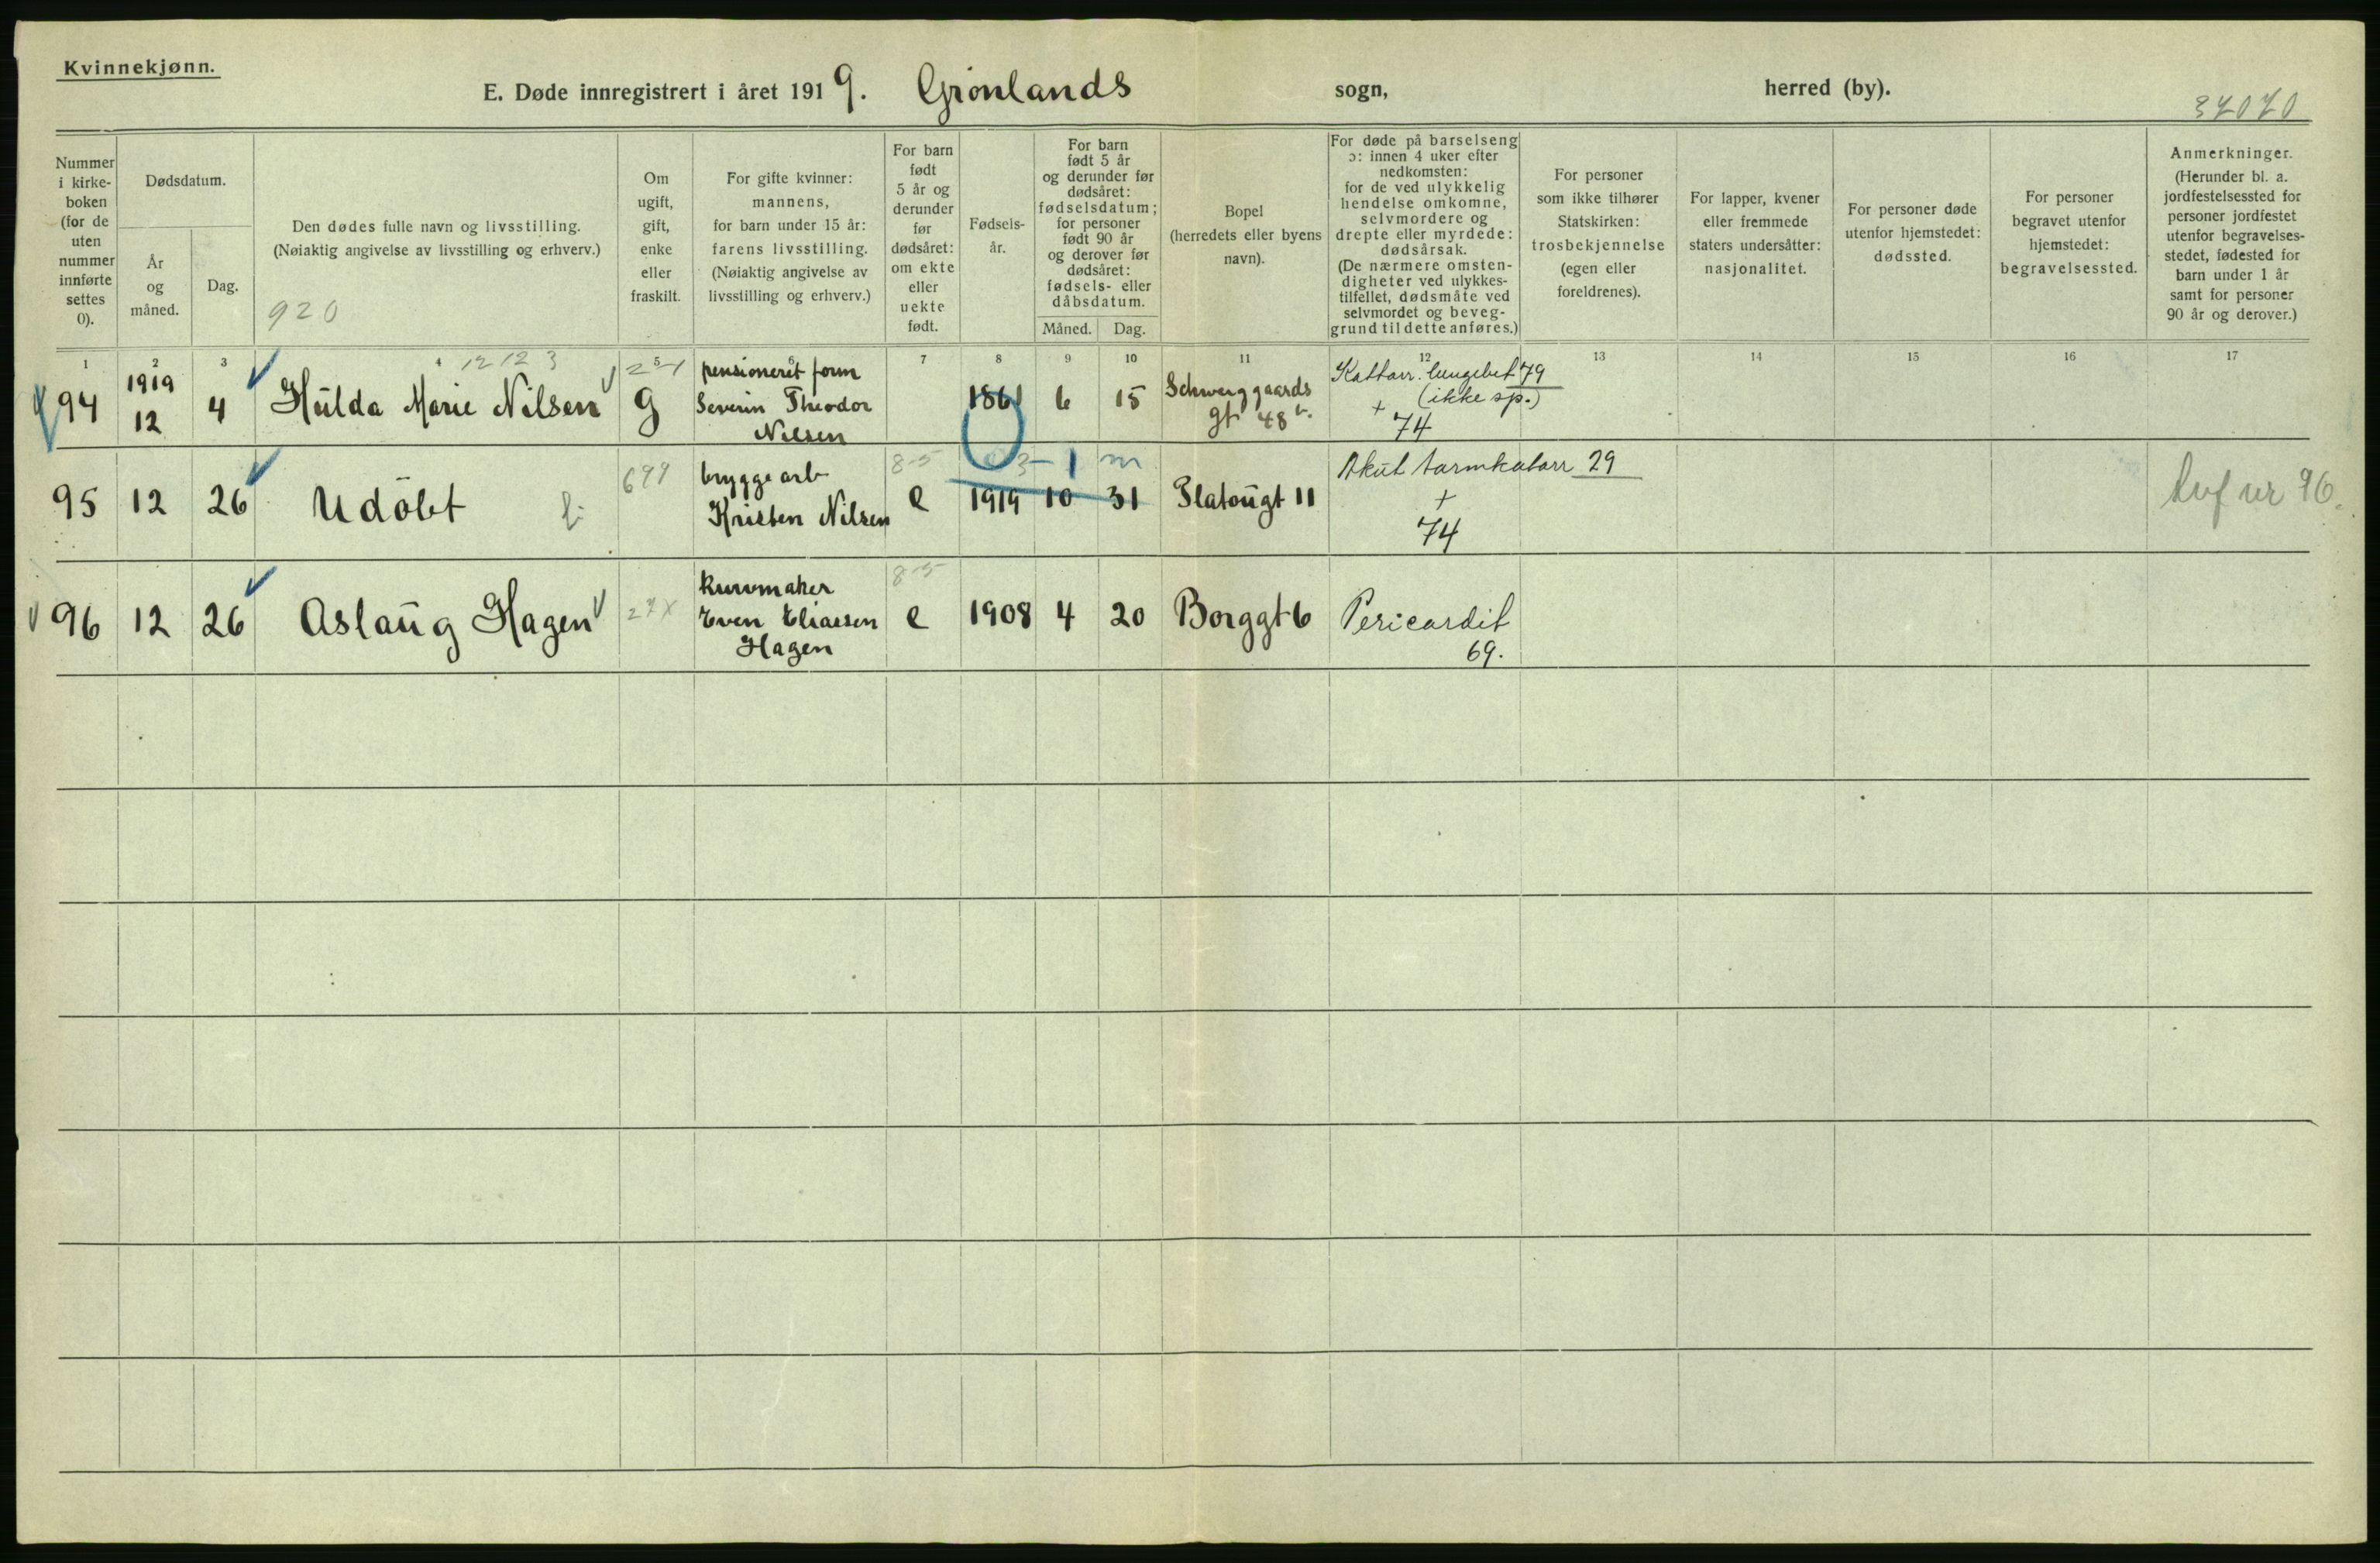 Kvinnekjønn.
E. Døde innregistrert i året 1919. Grønlands sogn, herred (by).
37070
Nummer i kirke- boken (for de uten nummer innførte settes 0).
Dødsdatum.
År og måned.
Dag.
Den dødes fulle navn og livsstilling.
(Nøiaktig angivelse av livsstilling og erhverv.)
920
Om ugift, gift, enke eller fraskilt.
For gifte kvinner: mannens, for barn under 15 år: farens livsstilling. (Nøiaktig angivelse av livsstilling og erhverv.)
For barn født 5 år og derunder før dødsåret: om ekte eller uekte født.
Fødsels- år.
For barn født 5 år og derunder før dødsåret: fødselsdatum; for personer født 90 år og derover før dødsåret: fødsels- eller dåbsdatum.
Måned. Dag.
Bopel (herredets eller byens navn).
For døde på barselseng ɔ: innen 4 uker efter nedkomsten: for de ved ulykkelig hendelse omkomne, selvmordere og drepte eller myrdede: dødsårsak. (De nærmere omsten- digheter ved ulykkes- tilfellet, dødsmåte ved selvmordet og beveg- grund til dette anføres.)
For personer som ikke tilhører Statskirken: trosbekjennelse (egen eller foreldrenes).
For lapper, kvener eller fremmede staters undersåtter: nasjonalitet.
For personer døde utenfor hjemstedet: dødssted.
For personer begravet utenfor hjemstedet: begravelsessted.
Anmerkninger. (Herunder bl. a. jordfestelsessted for personer jordfestet utenfor begravelses- stedet, fødested for barn under 1 år samt for personer 90 år og derover.)
1 2 3 4 5 6 7 8 9 10 11 12 13 14 15 16 17
12 12 3
94 1919 12 4 Hulda Marie Nilsen g pensioneret form Severin Theodor Nilsen 1861 6 15 Schweiggaards gt 48 b. Kattarr. lungebet 79 (ikke sp.) + 74
95 12 26 Udöbt 699 bryggearb Kristen Nilsen 8-5 e 3 - 1 m 1919 10 31 Platougt 11 Akut tarmkatarr 29 + 74 nr 96.
96 12 26 Aslaug Hagen 27x kurvmaker Even Eliassen Hagen 8-5 e 1908 4 20 Borggt 6 Pericardit 69.